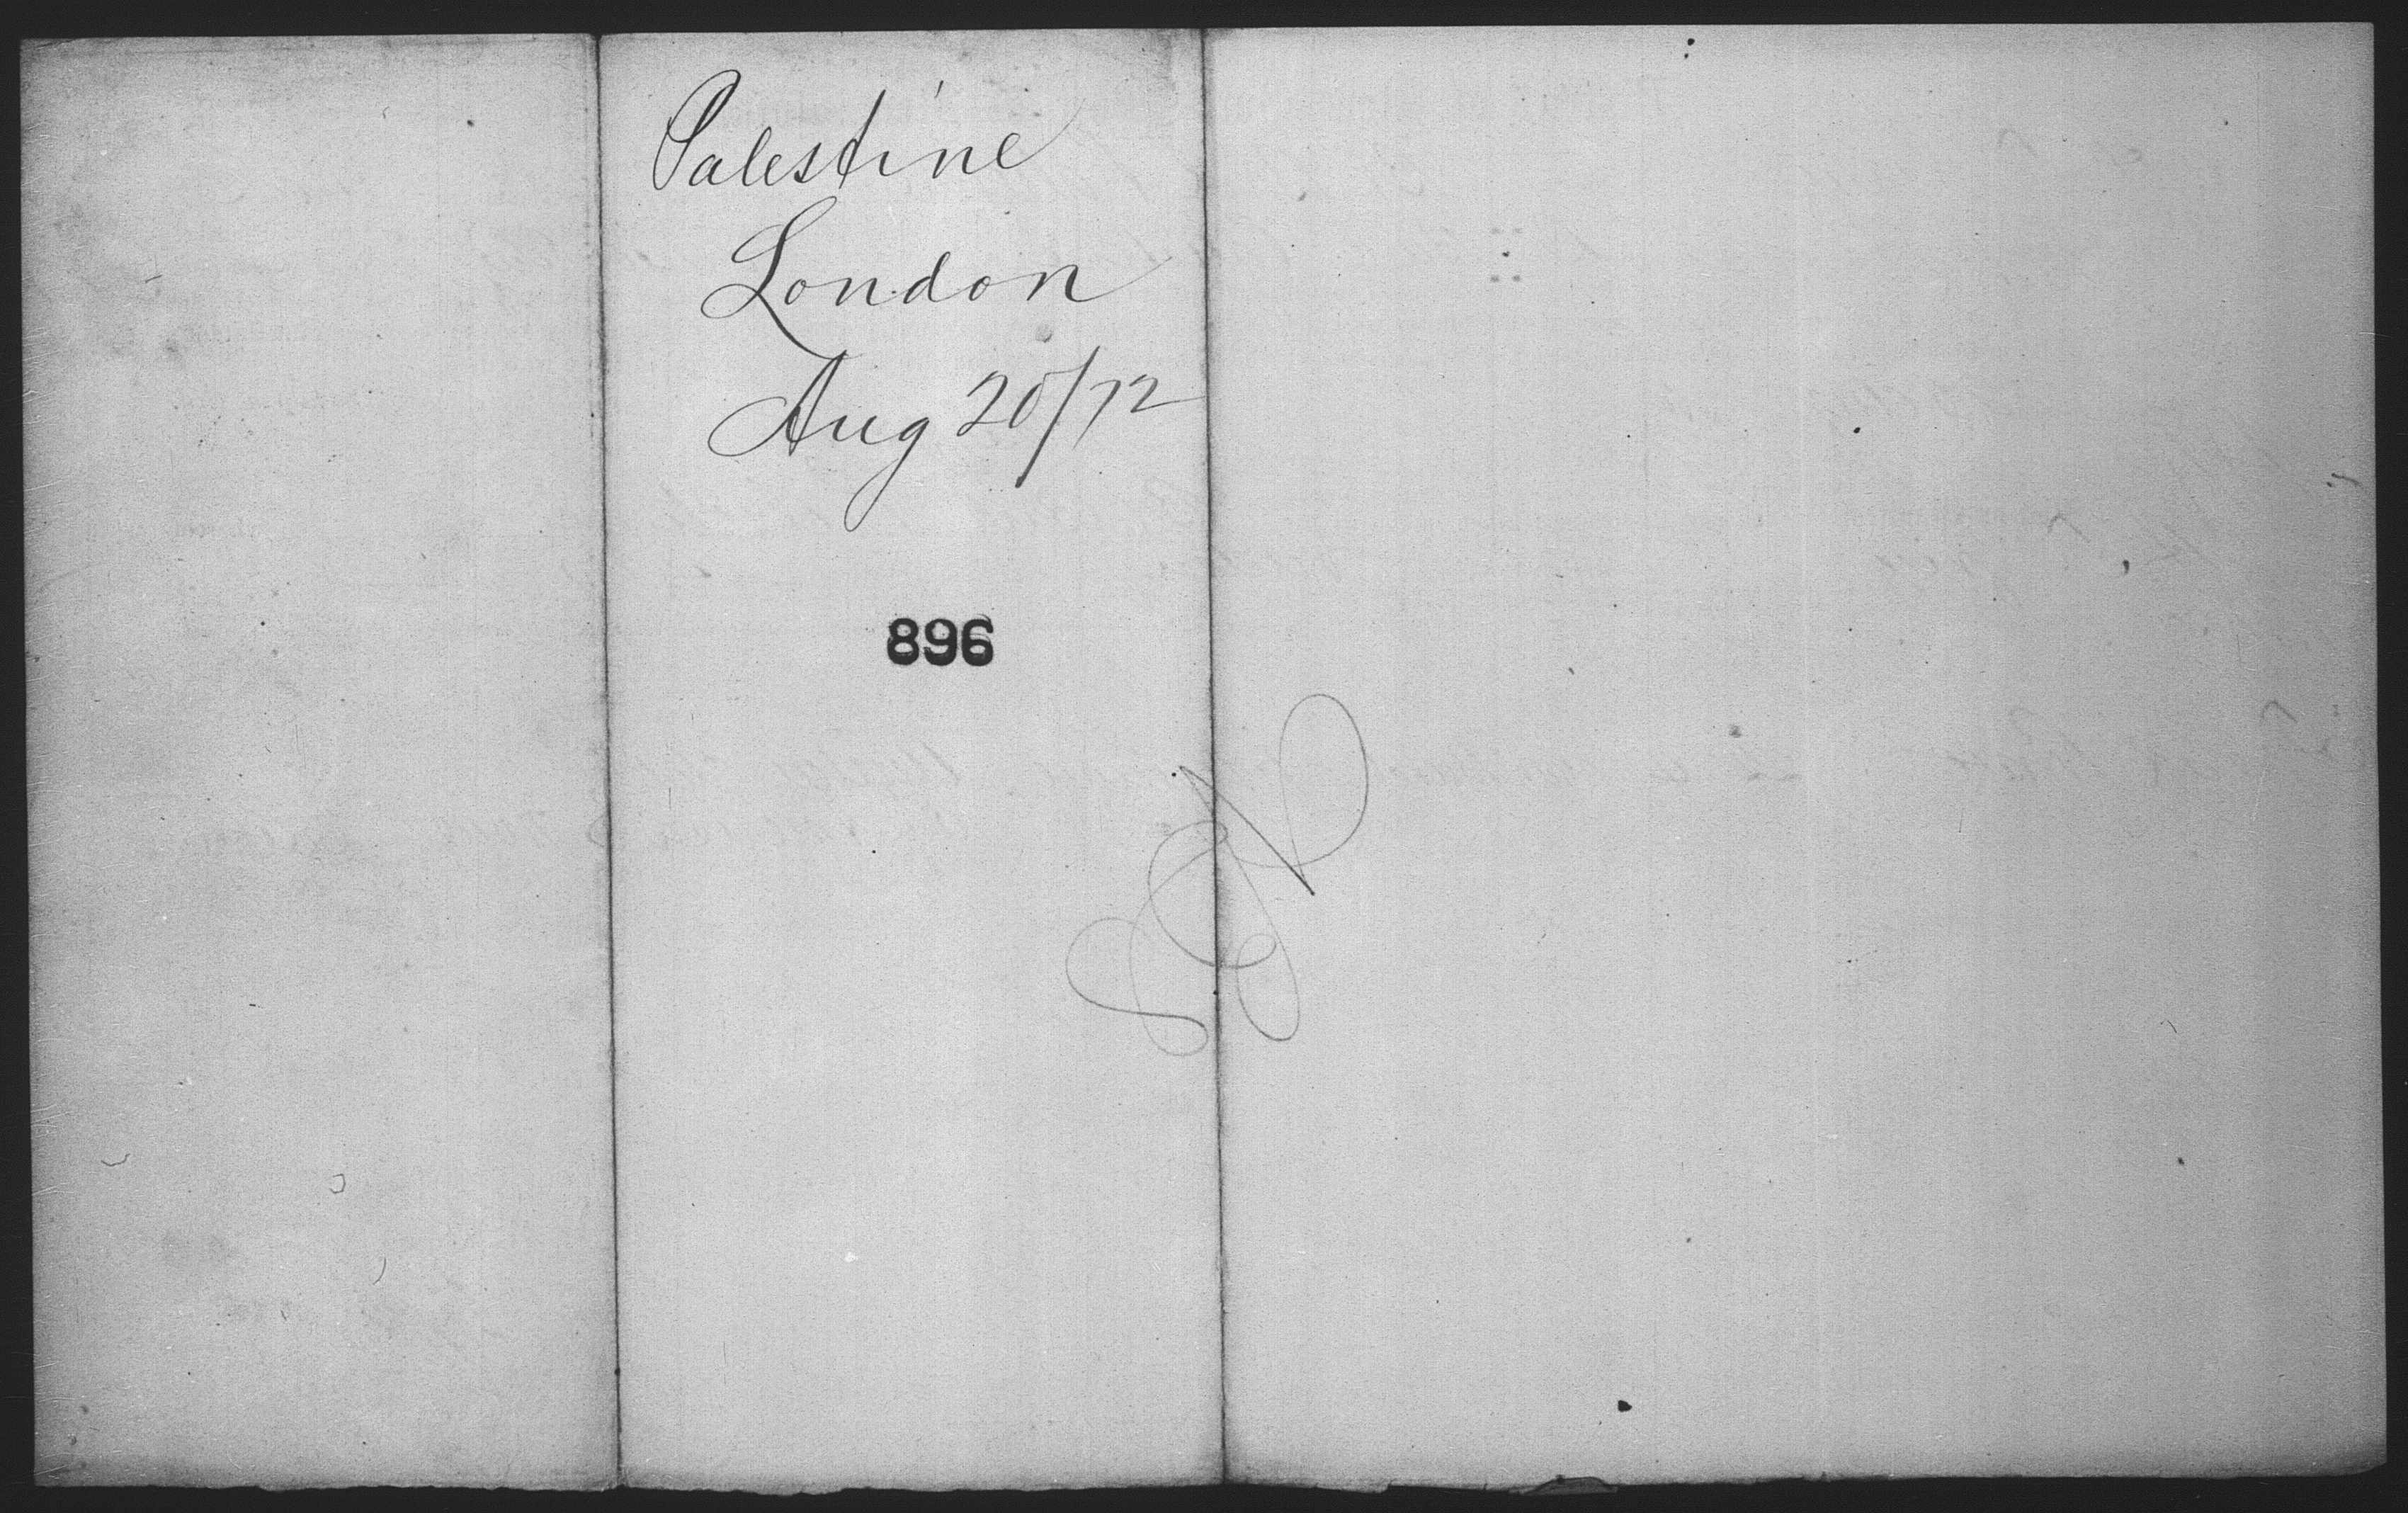 Palestine
London
Aug 20/72
896